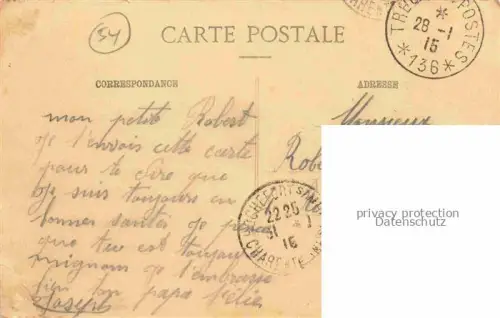 54
CARTE POSTALE
CORRESPONDANCE
ADRESSE
TRÉSOR POSTES
* 28 -1 15
* 136 *
Monsieur
mon petit Robert
je t'envois cette carte
pour te dire que
je suis toujours en
bonnes santés je pense
que tu est toujours
mignom je t'embrasse
bien ton papa
Joseph
ROCHEFORT S MER
22 25
31 -1
15
CHARENTE INF
privacy protection
Datenschutz